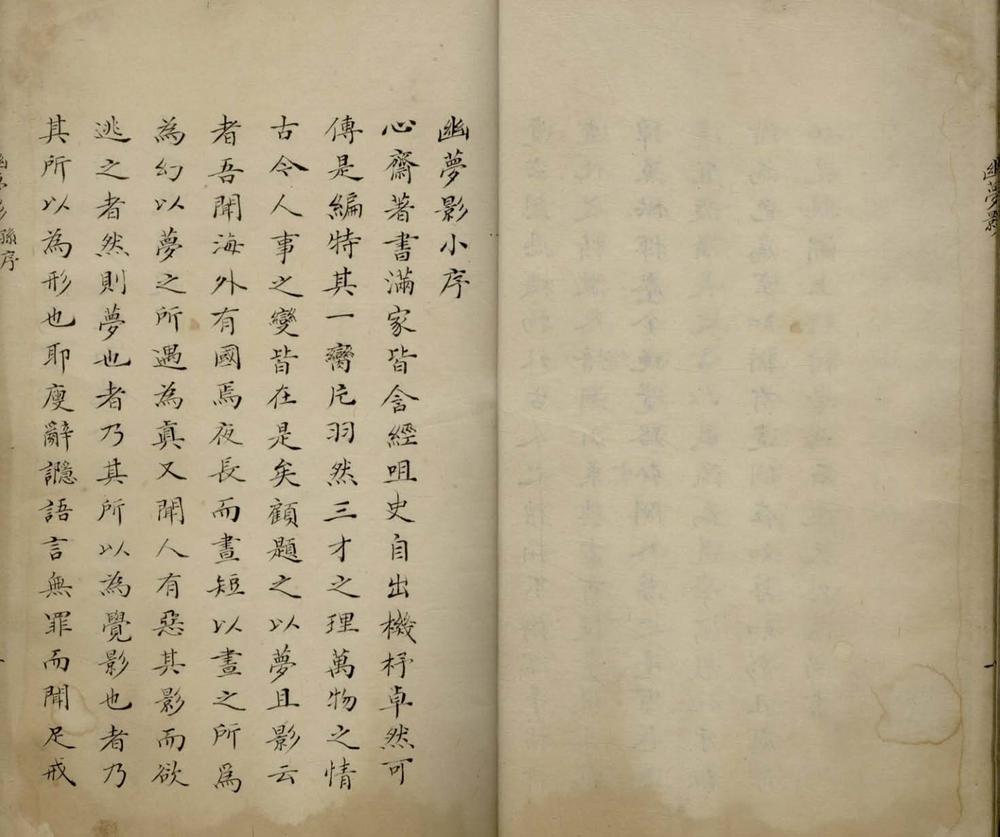 幽夢影
幽夢影小序
心齋著書滿家皆含經咀史自出機杼卓然可
傳是編特其一臠片羽然三才之理萬物之情
古今人事之變皆在是矣顧題之以夢且影云
者吾聞海外有國焉夜長而晝短以晝之所為
為幻以夢之所遇為真又聞人有惡其影而欲
逃之者然則夢也者乃其所以為覺影也者乃
其所以為形也耶廋辭讔語言無罪而聞足戒
幽夢影 孫序